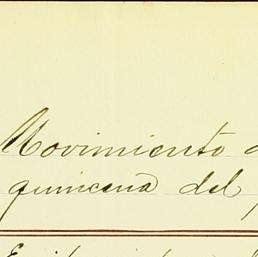 Movimiento d
quincena del